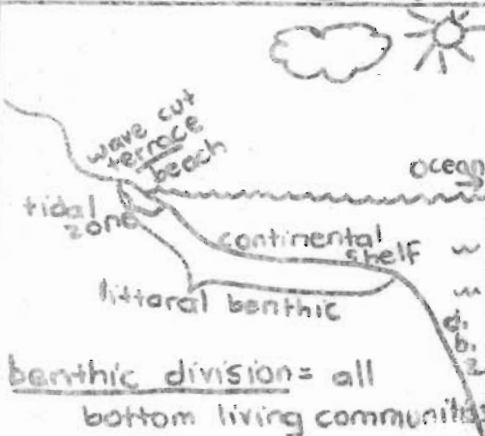 wave cut
terrace
beach
ocean
tidal
zone
continental
shelf
littoral benthic
d.
b.
z
benthic division = all
bottom living communities